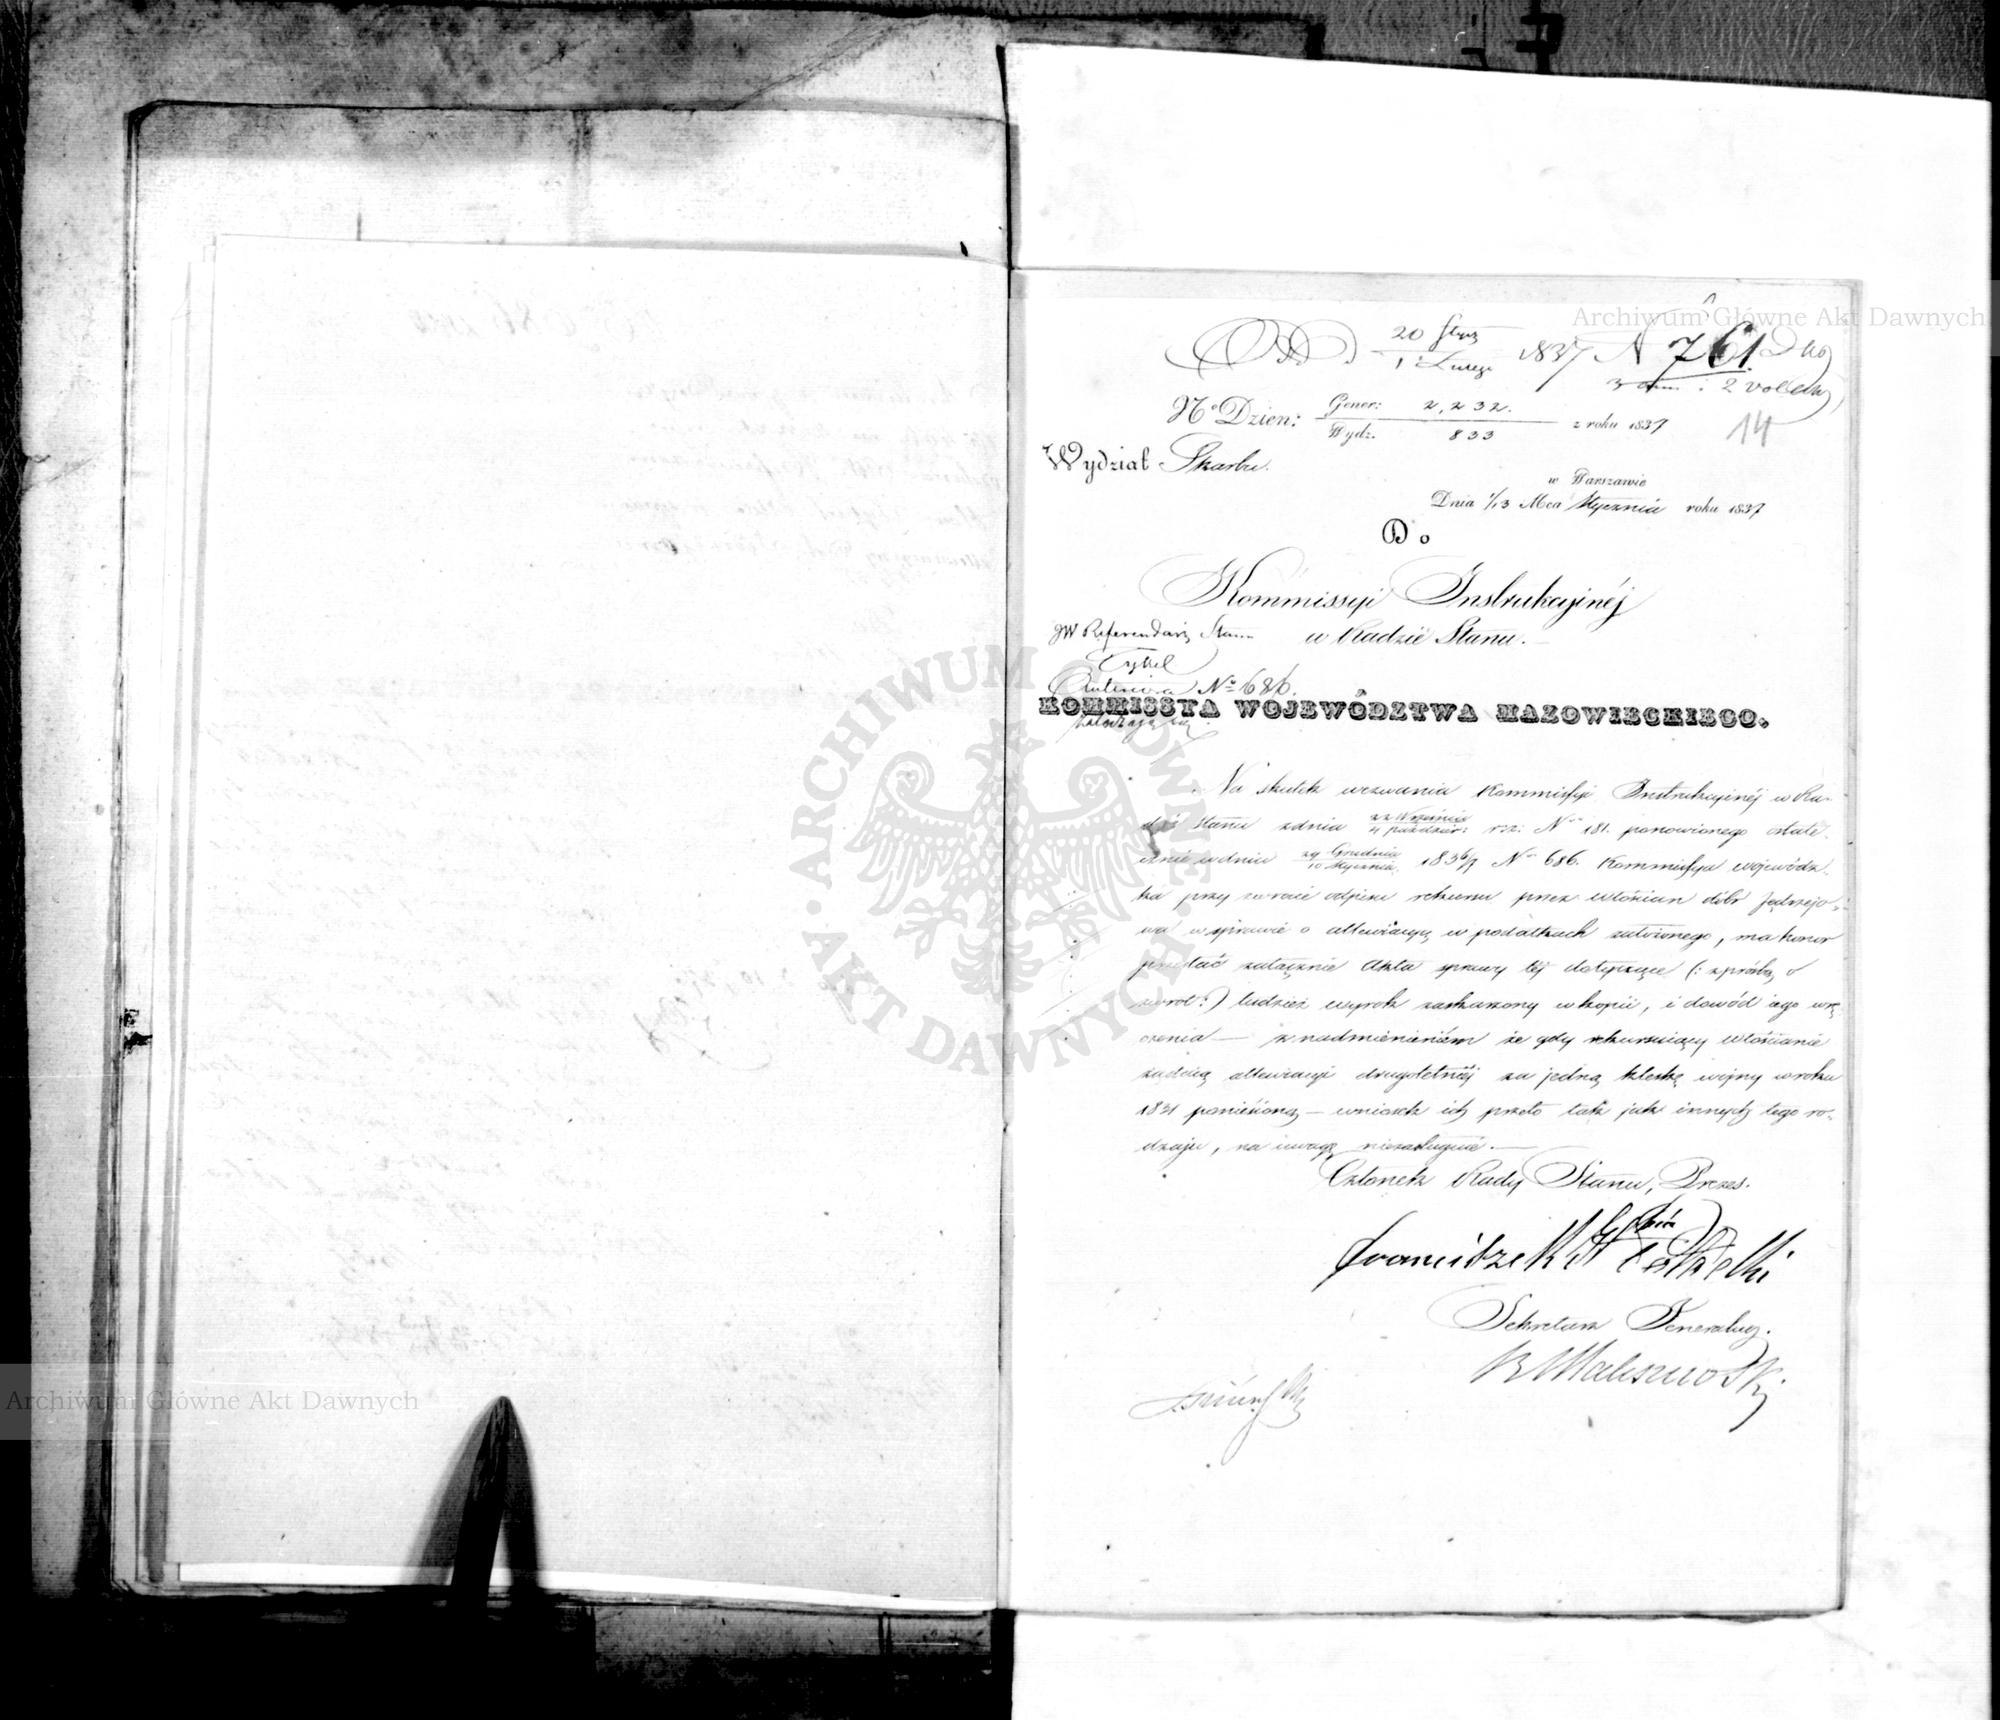 Archiwum Główne Akt Dawnych
20 Stycz
1 Lutego 1837 N 761
14
No Dzien: Gener: 2,232.
Wydz. 833 z roku 1837
Wydział Skarbu.
w Warszawie
Dnia 1/13 Mca Stycznia roku 1837
Do
Kommissyi Instrukcyinéj
w Radzie Stanu.
JW Referendarz Stanu
No 686.
KOMMISSYA WOJEWÓDZTWA MAZOWIECKIEGO.
Na skutek wezwania Kommissyi Instrukcyinéj w Ra-
dzie Stanu z dnia 22 Września / 4 Paździer: r.z: No 181. ponowionego ostate-
cznie w dniu 29 Grudnia / 10 Stycznia 1836/7 No 686. Kommissya wojewódz-
ka przy zwrocie odpisu rekursu przez włościan dóbr Jędrzejo-
wa w sprawie o allewiacyą w podatkach założonego, ma honor
przesłać załącznie Akta sprawy téj dotyczące (: z prośbą o
zwrot :) tudzież wyrok zaskarżony w kopii, i dowód jego wrę-
czenia — z nadmienieniem że gdy rekursuiący włościanie
żądaią allewiacyi drugoletniéj za jedną klęskę wojny w roku
1831 poniesioną — wniosek ich przeto tak jak innych tego ro-
dzaju, na uwagę niezasługuie. —
Członek Rady Stanu, Prezes.
Franciszek
Sekretarz Generalny.
Archiwum Główne Akt Dawnych
ARCHIWUM GŁÓWNE AKT DAWNYCH